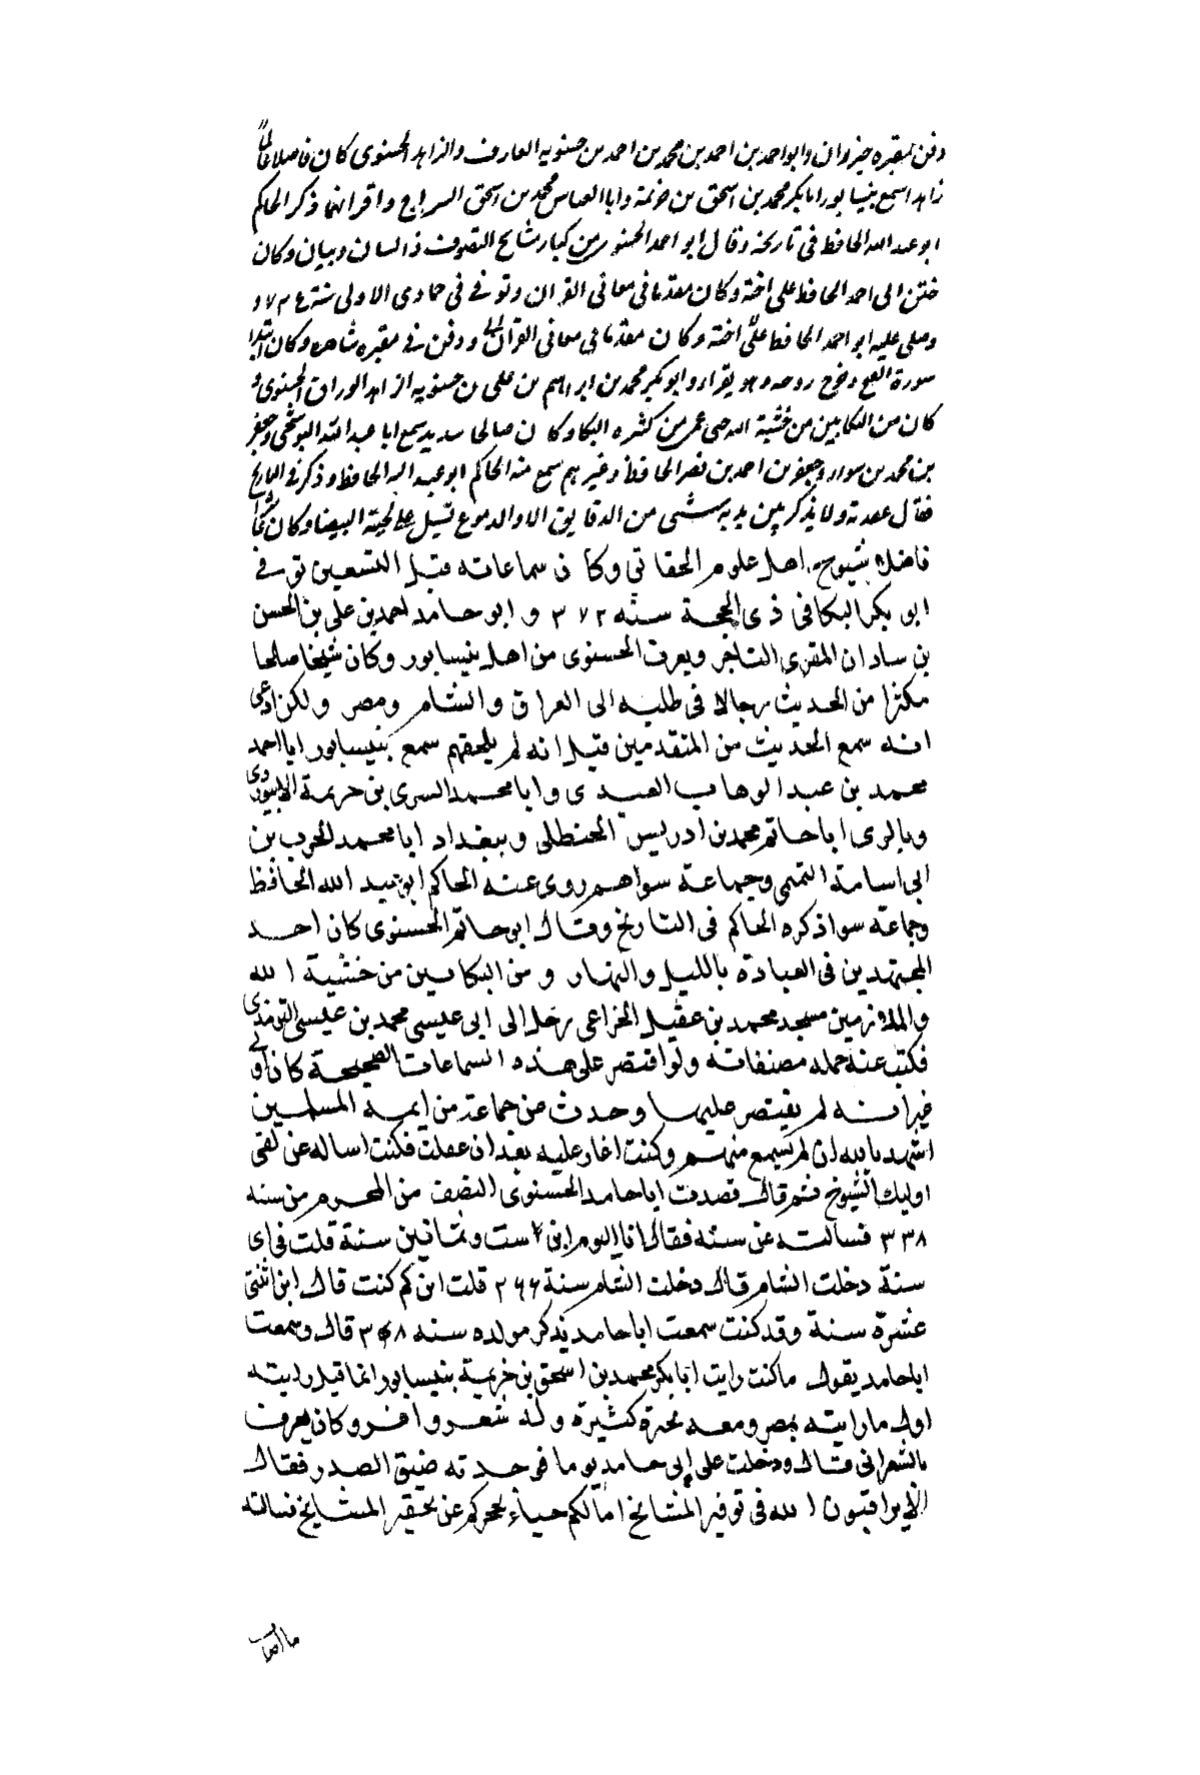 دفن بمقبره حيزوان وابو احمد بن احمد بن محمد بن احمد بن حسنويه العارف والزاهد الحسنوى كان فاضلا عالما
زاهدا سمع بنيسابور ابا بكر محمد بن اسحق بن خزيمة وابا العباس محمد بن اسحق السراج واقرانهما ذكر الحاكم
ابو عبد الله الحافظ فى تاريخه وقال ابو احمد الحسنوى من كبار مشايخ التصوف ذا لسان وبيان وكان
ختن ابى احمد الحافظ على اخته وكان مقدما فى معانى القران وتوفى فى جمادى الاولى سنة
وصلى عليه ابو احمد الحافظ على اخته وكان مقدما فى معانى القران ودفن فى مقبره شاهنبر وكان ابتدا
سورة الفتح وخرج روحه وهو يقرا وابو بكر محمد بن ابراهيم بن على بن حسنويه الزاهد الوراق الحسنوى و
كان من البكايين من خشية الله حتى عمى من كثره البكا وكان صالحا سديد سمع ابا عبد الله البوشنجى وجعفر
بن محمد بن سوار وجعفر بن احمد بن نصر الحافظ وغيرهم سمع منه الحاكم ابو عبد الله الحافظ وذكر فى التاريخ
فقال عهدته ولا يذكر بين يديه شى من الدقايق الا والدموع تسيل على لحيته البيضا وكان
فاضلا شيوخ اهل علوم الحقائق وكان سماعاته قبل التسعين توفى
ابو بكر البكا فى ذى الحجة سنه ٣٧٢ و ابو حامد احمد بن على بن الحسن
بن سادان المقرى التاجر ويعرف الحسنوى من اهل نيسابور وكان شيخا صالحا
مكثرا من الحديث رحالا فى طلبه الى العراق والشام ومصر ولكن ادعى
انه سمع الحديث من المتقدمين قبل انه لم يلحقهم سمع بنيسابور ابا احمد
محمد بن عبد الوهاب العبدى وابا محمد السرى بن خزيمة الابيوردى
وبالرى ابا حاتم محمد بن ادريس الحنظلى وببغداد ابا محمد الحرب بن
ابى اسامة التميمى وجماعة سواهم روى عنه الحاكم ابو عبيد الله الحافظ
وجماعة سوا ذكره الحاكم فى التاريخ وقال ابو حاتم الحسنوى كان احد
المجتهدين فى العبادة بالليل والنهار و من البكايين من خشية الله
والملازمين مسجد محمد بن عقيل الخزاعى رحل الى ابى عيسى محمد بن عيسى الترمذى
فكتب عنه جمله مصنفاته ولو اقتصر على هذه السماعات الصحيحة كان اولى
غير انه لم يقتصر عليها وحدث عن جماعة من ايمة المسلمين
اشهد بالله ان لم يسمع منهم وكنت اغار عليه بعد ان عقلت فكنت اساله عن لقى
اوليك الشيوخ فشم قال قصدت ابا حامد الحسنوى النصف من المحرم من سنه
٣٣٨ فسالته عن سنه فقال انا اليوم ابن ست وثمانين سنة قلت فى اى
سنة دخلت الشام قال دخلت الشام سنة ٢٦٦ قلت ابن كم كنت قال ابن اثنتى
عشرة سنة وقد كنت سمعت ابا حامد يذكر مولده سنه قال وسمعت
ابا حامد يقول ما كنت رايت ابا بكر محمد بن اسحق بن خزيمة بنيسابور انما قبل رايته
اول ما رايته بمصر ومعه محبرة كثيرة وله شعر وافر وكان يعرف
بالشعرانى وقال ودخلت على ابى حامد يوما فوجدته ضيق الصدر فقال
الا يراقبون الله فى توقير المشائخ اما لكم حياء يحجركم عن تحقير المشايخ فسالته
ما اصاب